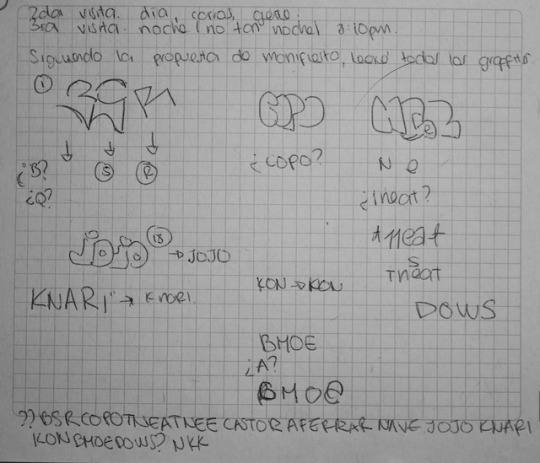 2da visita. dia, carros, gente.
3ra visita. noche (no tan noche) 8:10pm.
Siguendo la propuesta do manifiesto, leere todos los graffitis
①
¿B? Ⓢ Ⓡ
¿Q?
COPO
¿COPO?
N e
¿ineat?
tneat
S
Tneat
JoJo ⑬ → JOJO
KNARI → KNARI.
KON → KON
DOWS
BHOE
¿A?
BHOE
?? BSR COPO TNEAT NEE CASTOR AFERRAR NAVE JOJO KNARI
KON BHOE DOWS? NKK